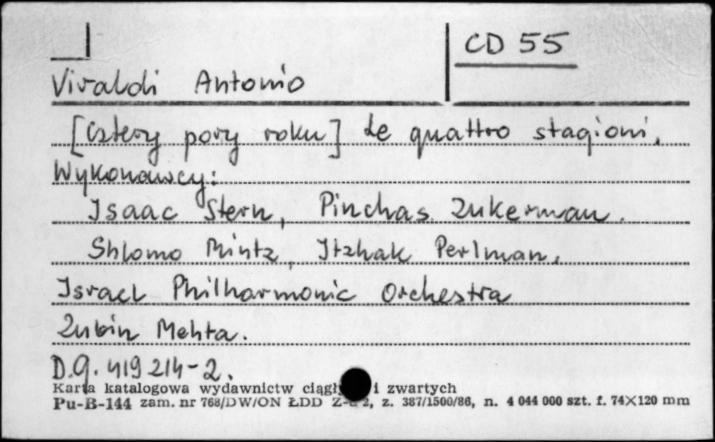 CD 55
Vivaldi Antonio
[Cztery pory roku] Le quattro stagioni.
Wykonawcy:
Isaac Stern, Pinchas Zukerman.
Shlomo Mintz, Itzhak Perlman.
Israel Philharmonic Orchestra
Zubin Mehta.
D.G. 419 214-2.
Karta katalogowa wydawnictw i zwartych
Pu-B-144 zam. nr 768/DW/ON ŁDD 2, z. 387/1500/86, n. 4 044 000 szt. f. 74×120 mm